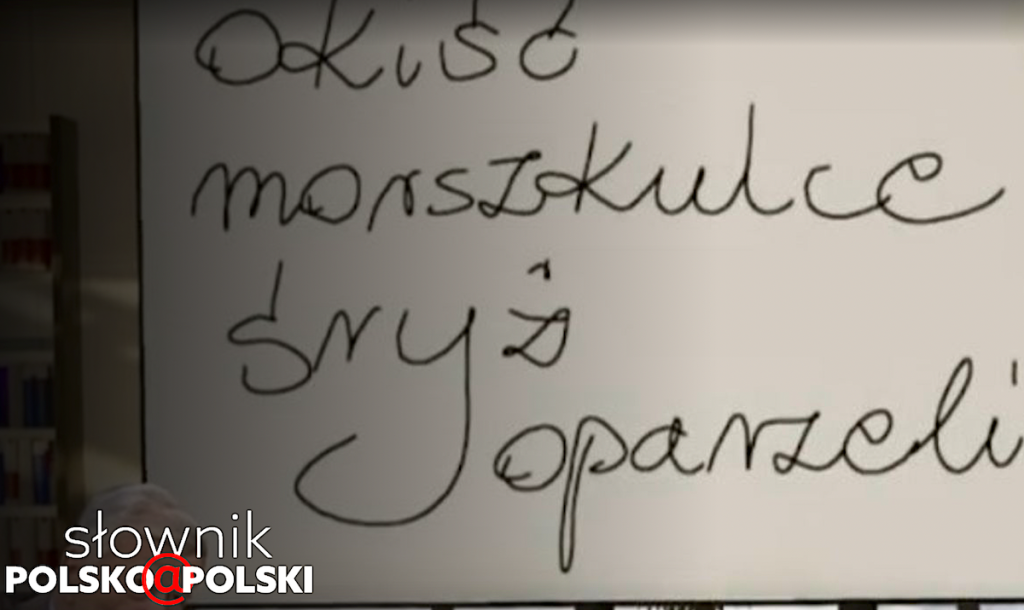 okiść
morszkulce
śryż
oparzeli
słownik
POLSKO@POLSKI